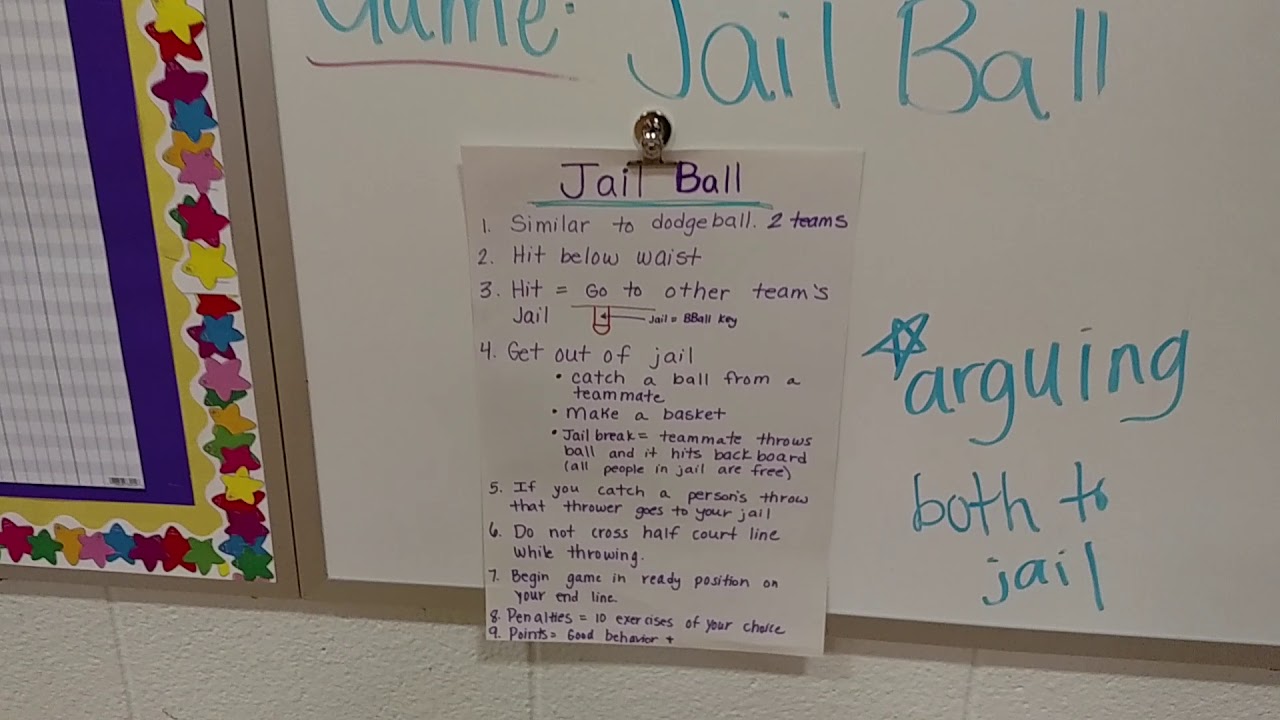 Game: Jail Ball
Jail Ball
1. Similar to dodgeball. 2 teams
2. Hit below waist
3. Hit = Go to other team's
Jail
Jail = BBall key
4. Get out of jail
• catch a ball from a
teammate
• Make a basket
• Jail break = teammate throws
ball and it hits back board
(all people in jail are free)
5. If you catch a person's throw
that thrower goes to your jail
6. Do not cross half court line
while throwing.
7. Begin game in ready position on
your end line.
8. Penalties = 10 exercises of your choice
9. Points = Good behavior +
arguing
both to
jail